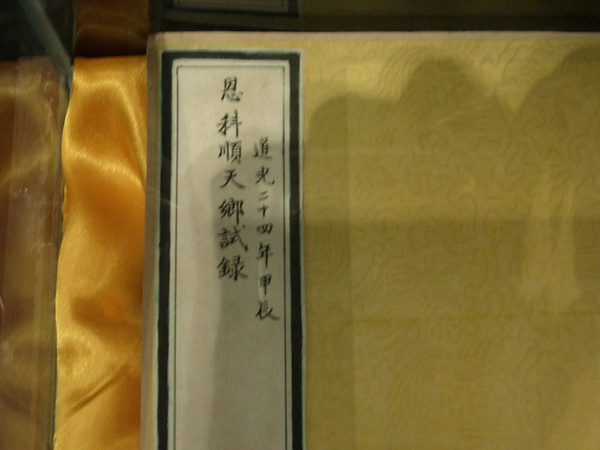 道光二十四年甲辰
恩科順天鄉試録